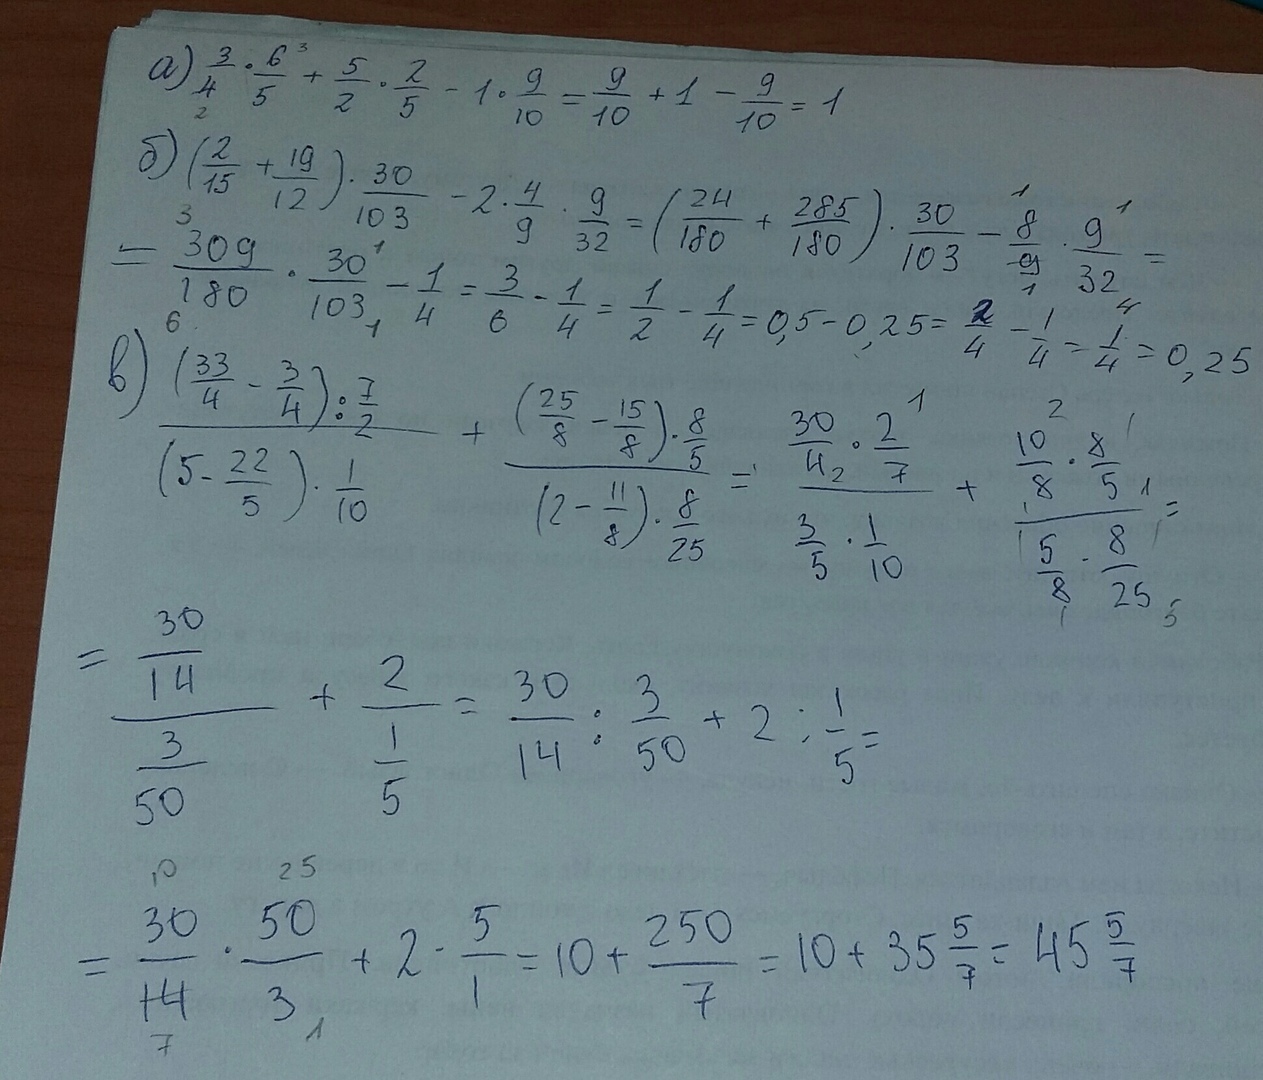 а) 3/4 · 6/5 + 5/2 · 2/5 - 1 · 9/10 = 9/10 + 1 - 9/10 = 1
б) (2/15 + 19/12) · 30/103 - 2 · 4/9 · 9/32 = (24/180 + 285/180) · 30/103 - 8/9 · 9/32 =
= 309/180 · 30/103 - 1/4 = 3/6 - 1/4 = 1/2 - 1/4 = 0,5 - 0,25 = 2/4 - 1/4 = 1/4 = 0,25
в) ((33/4 - 3/4) : 7/2)/((5 - 22/5) · 1/10) + ((25/8 - 15/8) · 8/5)/((2 - 11/8) · 8/25) = (30/4 · 2/7)/(3/5 · 1/10) + (10/8 · 8/5)/(5/8 · 8/25) =
= (30/14)/(3/50) + 2/(1/5) = 30/14 : 3/50 + 2 : 1/5 =
= 30/14 · 50/3 + 2 · 5/1 = 10 + 250/7 = 10 + 35 5/7 = 45 5/7